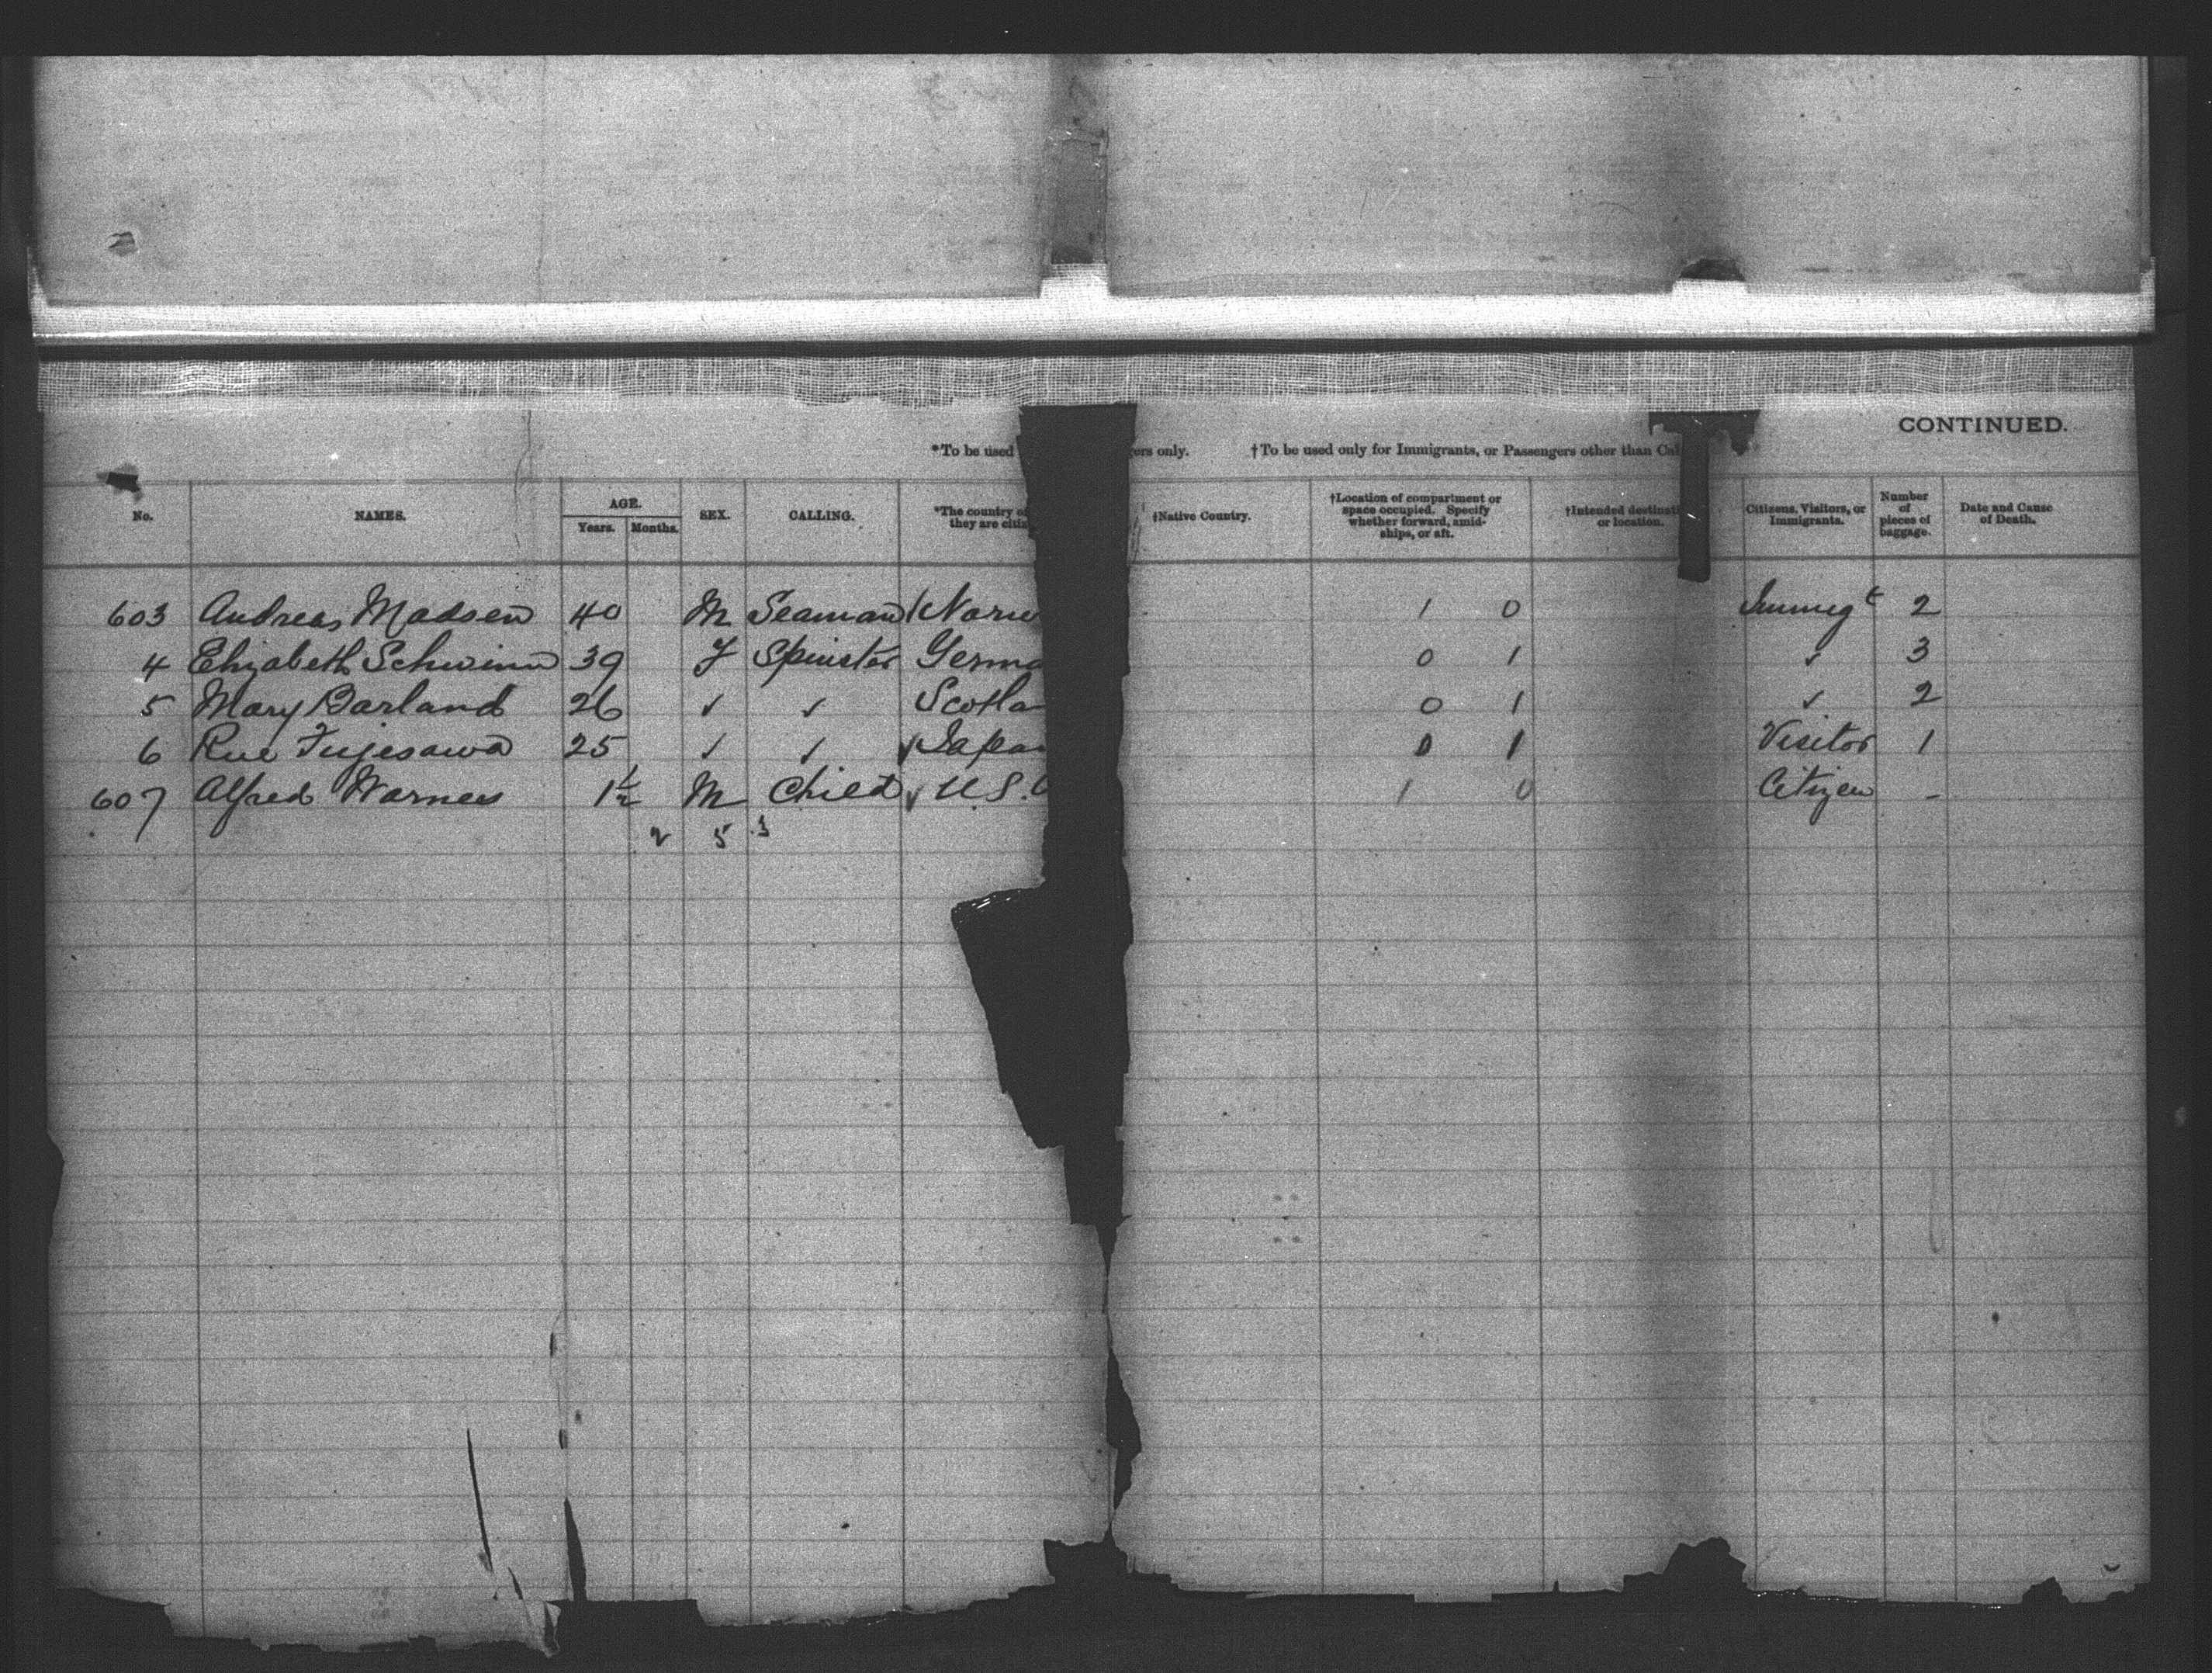 CONTINUED.
*To be used ers only. †To be used only for Immigrants, or Passengers other than Cab
No. NAMES. AGE. Years. Months. SEX. CALLING. *The country of they are citiz †Native Country. †Location of compartment or space occupied. Specify whether forward, amidships, or aft. †Intended destinati or location. Citizens, Visitors, or Immigrants. Number of pieces of baggage. Date and Cause of Death.
603 Andreas Madsen 40 M Seaman Norw 1 0 Immigt 2
4 Elizabeth Schwinn 39 F Spinster Germa 0 1 ✓ 3
5 Mary Garland 26 ✓ ✓ Scotla 0 1 ✓ 2
6 Rue Fujesawa 25 ✓ ✓ ✓ Japan 0 1 Visitor 1
607 Alfred 1½ M Child ✓ U.S. 1 0 Citizen -
2 5 3